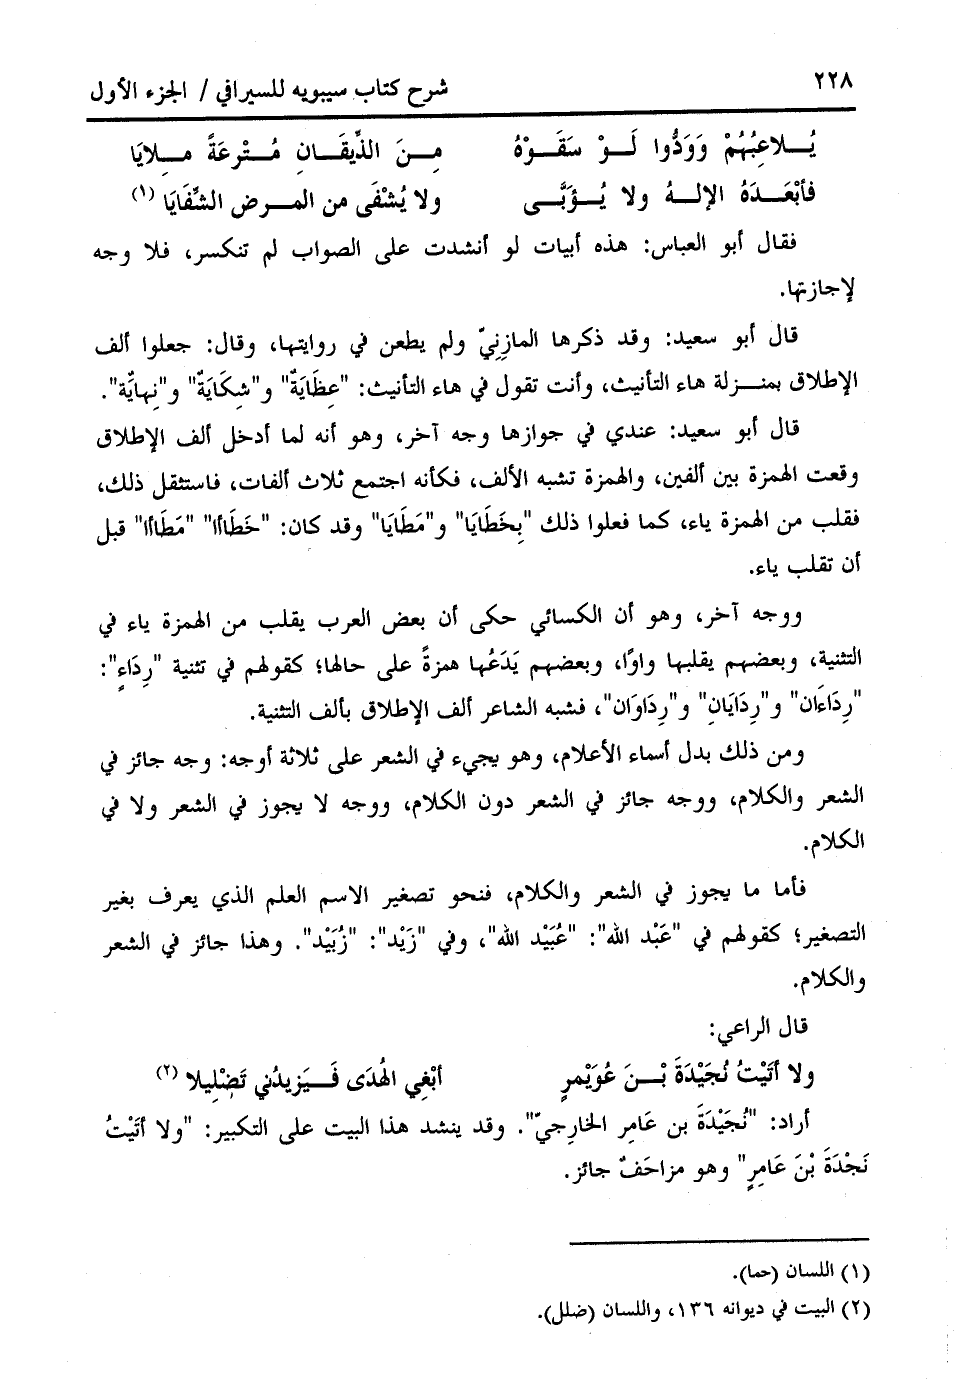 ٢٢٨ شرح كتاب سيبويه للسيرافي / الجزء الأول
يُــلاعِبُهُمْ وَوَدُّوا لَــوْ سَقَــوْهُ مِــنَ الذِّيقَــانِ مُــتْرعَةً مِــلايَا
فأبْعَــدَهُ الإلــهُ ولا يُــؤَبَّــى ولا يُشْفَى من المــرض الشِّفَايَا (١)
فقال أبو العباس: هذه أبيات لو أنشدت على الصواب لم تنكسر، فلا وجه
لإجازتها.
قال أبو سعيد: وقد ذكرها المازنِيّ ولم يطعن في روايتها، وقال: جعلوا ألف
الإطلاق بمنــزلة هاء التأنيث، وأنت تقول في هاء التأنيث: "عِظَايَةٌ" و"شِكَايَةٌ" و"نِهايَّة".
قال أبو سعيد: عندي في جوازها وجه آخر، وهو أنه لما أدخل ألف الإطلاق
وقعت الهمزة بين ألفين، والهمزة تشبه الألف، فكأنه اجتمع ثلاث ألفات، فاستثقل ذلك،
فقلب من الهمزة ياء، كما فعلوا ذلك "بِخَطَايَا" و"مَطَايَا" وقد كان: "خَطَاأا" "مَطَاأا" قبل
أن تقلب ياء.
ووجه آخر، وهو أن الكسائي حكى أن بعض العرب يقلب من الهمزة ياء في
التثنية، وبعضهم يقلبها واوًا، وبعضهم يَدَعُها همزةً على حالها؛ كقولهم في تثنية "رِدَاءٍ":
"رِدَاءَان" و"رِدَايَانِ" و"رِدَاوَان"، فشبه الشاعر ألف الإطلاق بألف التثنية.
ومن ذلك بدل أسماء الأعلام، وهو يجيء في الشعر على ثلاثة أوجه: وجه جائز في
الشعر والكلام، ووجه جائز في الشعر دون الكلام، ووجه لا يجوز في الشعر ولا في
الكلام.
فأما ما يجوز في الشعر والكلام، فنحو تصغير الاسم العلم الذي يعرف بغير
التصغير؛ كقولهم في "عَبْد الله": "عُبَيْد الله"، وفي "زَيْد": "زُبَيْد". وهذا جائز في الشعر
والكلام.
قال الراعي:
ولا أتَيْتُ نُجَيْدَةَ بْــنَ عُوَيْمرٍ أبْغِي الهُدَى فَــيَزيدُني تَضْلِيلا (٢)
أراد: "نُجَيْدَةَ بن عَامر الخارجيّ". وقد ينشد هذا البيت على التكبير: "ولا أتَيْتُ
نَجْدَةَ بْنَ عَامِرٍ" وهو مزاحَفٌ جائز.
(١) اللسان (حما).
(٢) البيت في ديوانه ١٣٦، واللسان (ضلل).